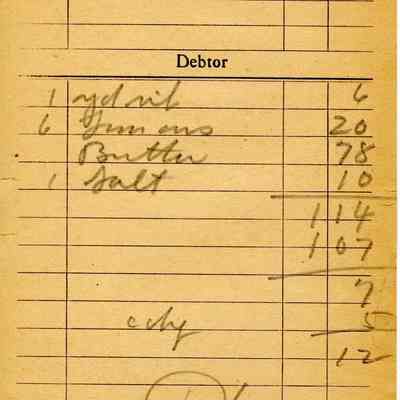 Debtor
1 yd oil 6
6 Lemons 20
Butter 78
1 Salt 10
114
107
7
cdy 5
12